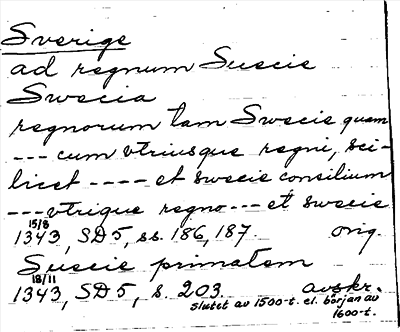 Sverige
ad regnum Suecie
Swecia
regnorum tam Swecie quam
--- cum vtriusque regni, sci-
licet ---- et swecie consilium
--- vtrique regno --- et swecie
15/8
1343, SD5, ss. 186, 187. orig.
Suecie primatem
18/11
1343, SD5, s. 203. avskr.
slutet av 1500-t. el. början av
1600-t.